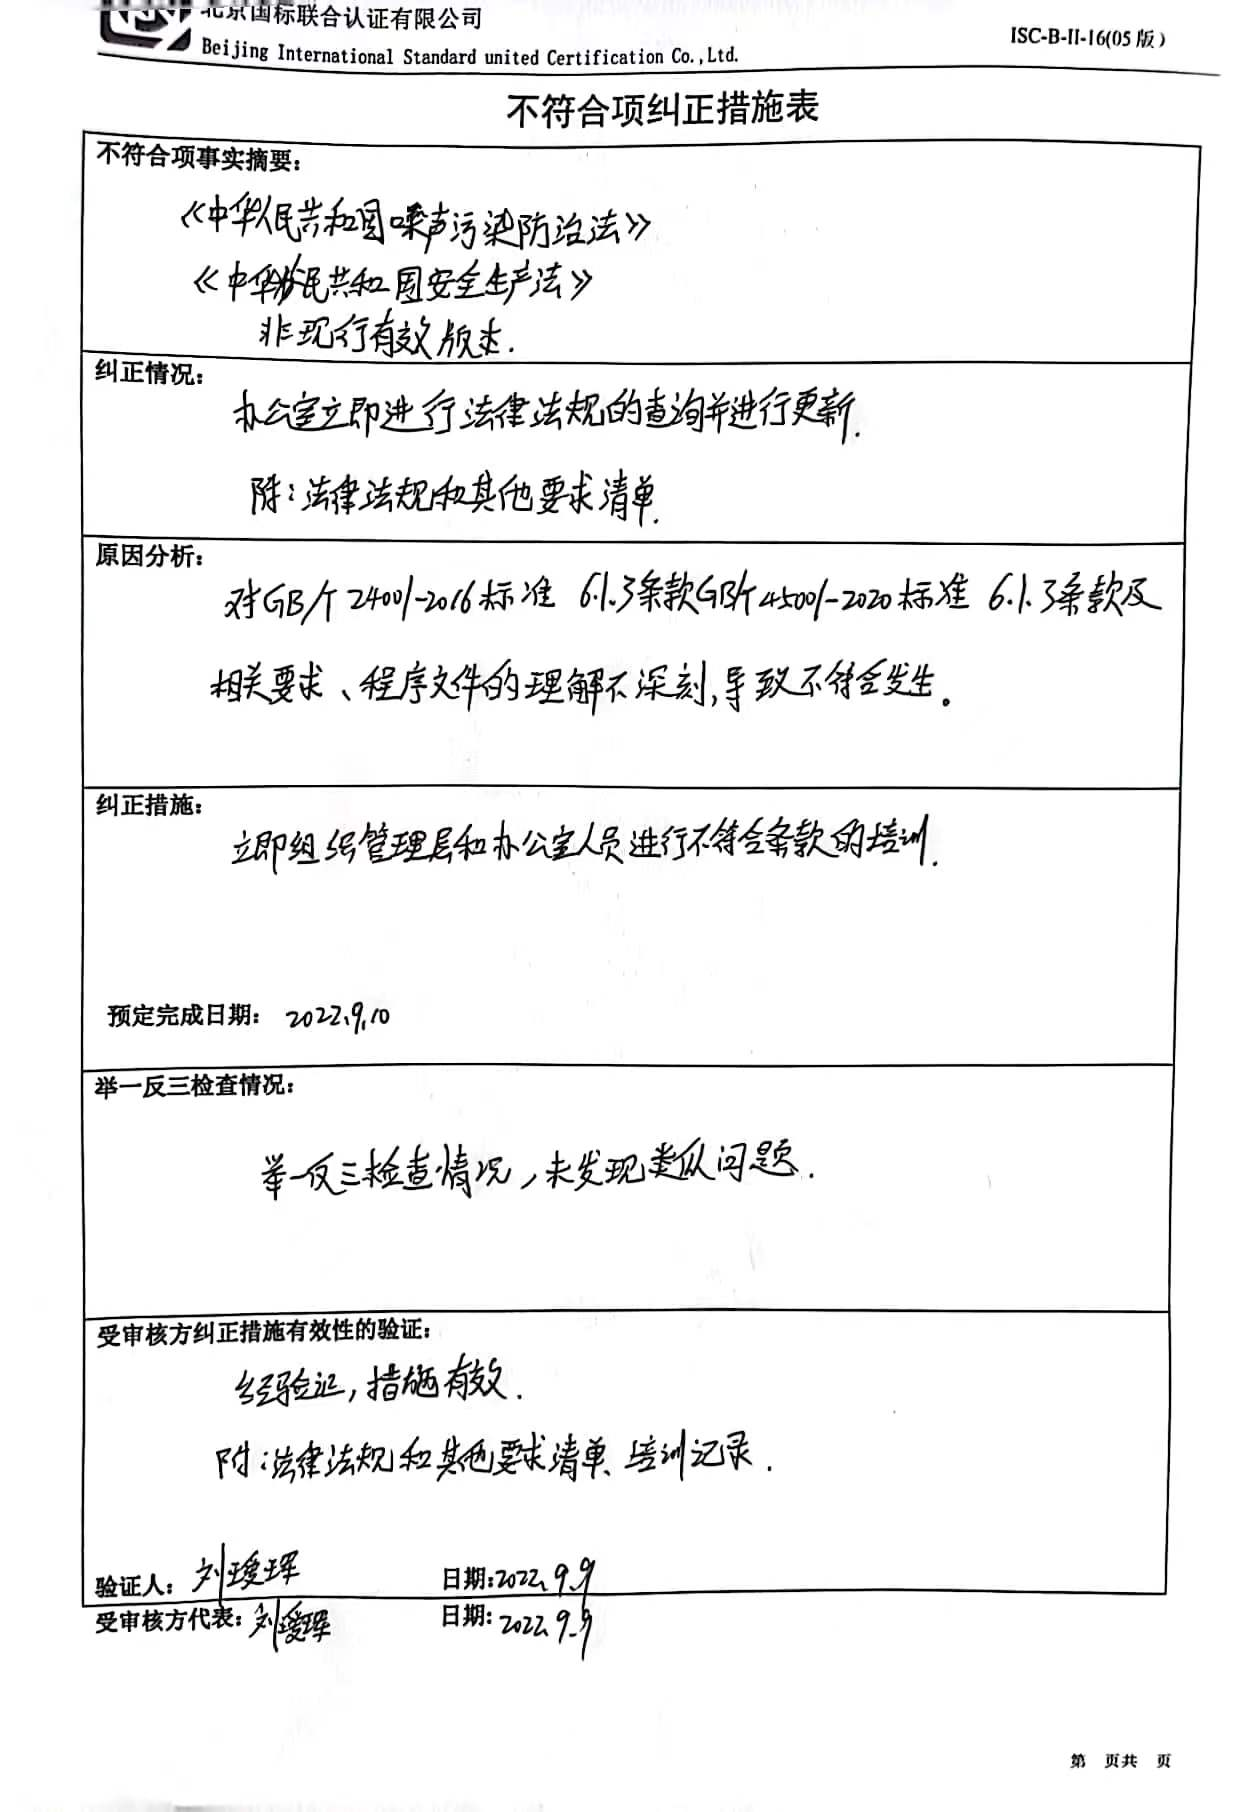 北京国标联合认证有限公司
Beijing International Standard united Certification Co.,Ltd.
ISC-B-II-16(05版)
不符合项纠正措施表
不符合项事实摘要:
《中华人民共和国噪声污染防治法》
《中华人民共和国安全生产法》
非现行有效版本.
纠正情况:
办公室立即进行法律法规的查询并进行更新.
附:法律法规和其他要求清单.
原因分析:
对GB/T 24001-2016标准 6.1.3条款GB/T 45001-2020标准 6.1.3条款及
相关要求、程序文件的理解不深刻,导致不符合发生。
纠正措施:
立即组织管理层和办公室人员进行不符合条款的培训.
预定完成日期: 2022.9.10
举一反三检查情况:
举一反三检查情况,未发现类似问题.
受审核方纠正措施有效性的验证:
经验证,措施有效.
附:法律法规和其他要求清单、培训记录.
验证人: 刘瑷珲 日期:2022.9.9
受审核方代表: 刘瑷珲 日期: 2022.9.9
第 页共 页